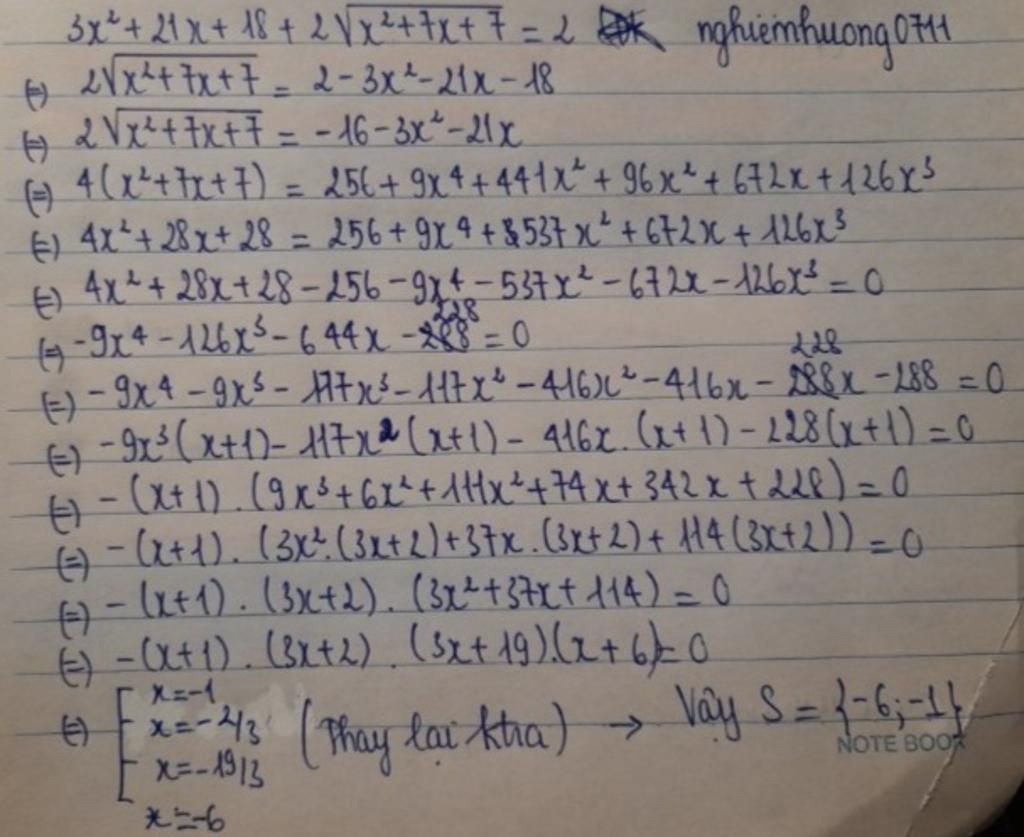 3x² + 21x + 18 + 2√(x²+7x+7) = 2 nghiemhuong0711
(=) 2√(x²+7x+7) = 2 - 3x² - 21x - 18
(=) 2√(x²+7x+7) = -16 - 3x² - 21x
(=) 4(x²+7x+7) = 256 + 9x⁴ + 441x² + 96x² + 672x + 126x³
(=) 4x² + 28x + 28 = 256 + 9x⁴ + 537x² + 672x + 126x³
(=) 4x² + 28x + 28 - 256 - 9x⁴ - 537x² - 672x - 126x³ = 0
(=) -9x⁴ - 126x³ - 644x - 228 = 0
(=) -9x⁴ - 9x³ - 117x³ - 117x² - 416x² - 416x - 228x - 288 = 0
(=) -9x³(x+1) - 117x²(x+1) - 416x.(x+1) - 228(x+1) = 0
(=) -(x+1).(9x³ + 6x² + 111x² + 74x + 342x + 228) = 0
(=) -(x+1).(3x².(3x+2) + 37x.(3x+2) + 114(3x+2)) = 0
(=) -(x+1).(3x+2).(3x² + 37x + 114) = 0
(=) -(x+1).(3x+2).(3x+19).(x+6) = 0
x = -1
(=) x = -2/3 (Thay lại ktra) → Vậy S = {-6; -1}
NOTE BOOK
x = -19/3
x = -6